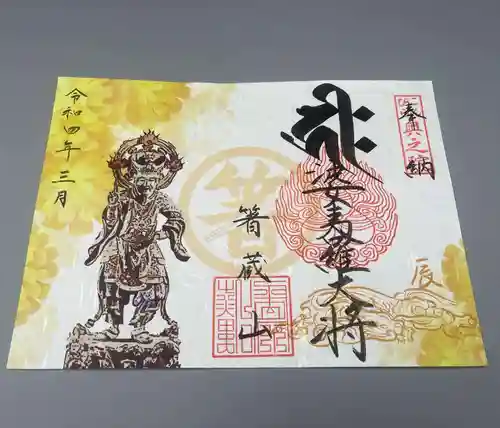 奉納
婆夷羅大将
箸
箸蔵山
辰
令和四年三月